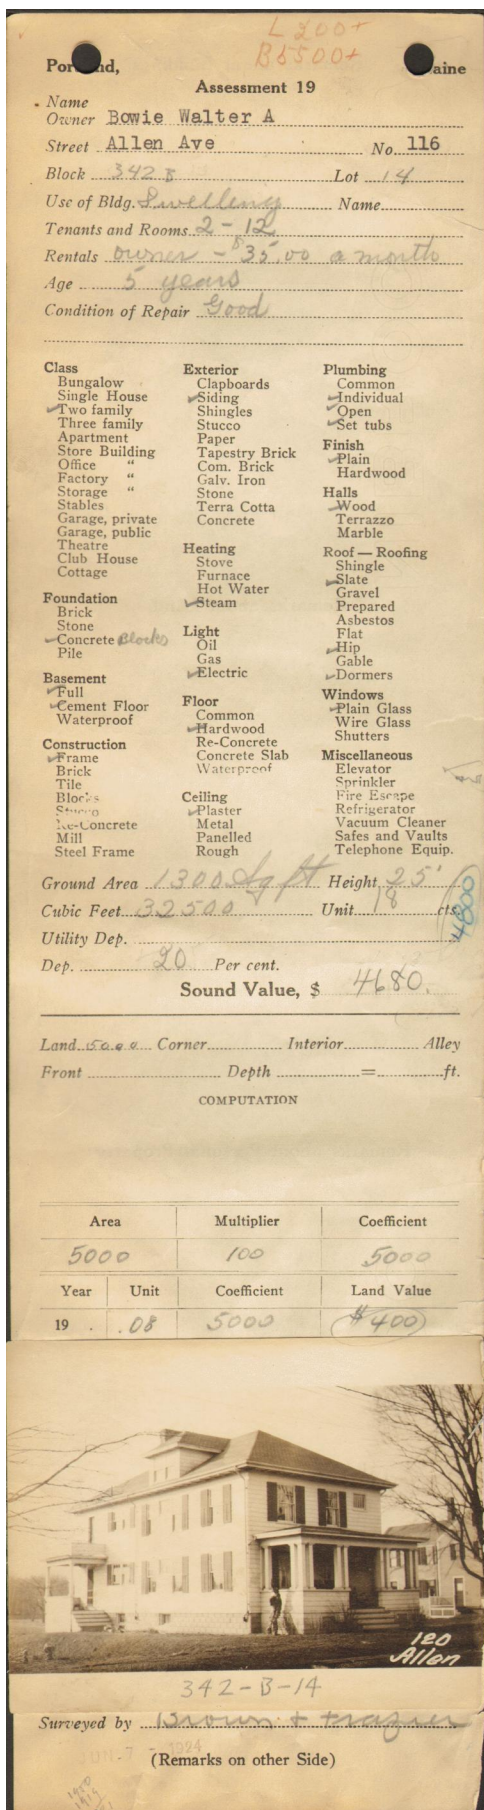 L 200+
B 5500+
Portland, Maine
Assessment 19
Name
Owner Bowie Walter A
Street Allen Ave No. 116
Block 342 B Lot 14
Use of Bldg. Dwelling Name
Tenants and Rooms 2 - 12
Rentals owner - $35.00 a month
Age 5 years
Condition of Repair Good
Class
Bungalow
Single House
✓Two family
Three family
Apartment
Store Building
Office "
Factory "
Storage "
Stables
Garage, private
Garage, public
Theatre
Club House
Cottage
Foundation
Brick
Stone
✓Concrete Blocks
Pile
Basement
✓Full
✓Cement Floor
Waterproof
Construction
✓Frame
Brick
Tile
Blocks
Stucco
Re-Concrete
Mill
Steel Frame
Exterior
Clapboards
✓Siding
Shingles
Stucco
Paper
Tapestry Brick
Com. Brick
Galv. Iron
Stone
Terra Cotta
Concrete
Heating
Stove
Furnace
Hot Water
✓Steam
Light
Oil
Gas
✓Electric
Floor
Common
✓Hardwood
Re-Concrete
Concrete Slab
Waterproof
Ceiling
✓Plaster
Metal
Panelled
Rough
Plumbing
Common
✓Individual
✓Open
✓Set tubs
Finish
✓Plain
Hardwood
Halls
✓Wood
Terrazzo
Marble
Roof — Roofing
Shingle
✓Slate
Gravel
Prepared
Asbestos
Flat
✓Hip
Gable
✓Dormers
Windows
✓Plain Glass
Wire Glass
Shutters
Miscellaneous
Elevator
Sprinkler
Fire Escape
Refrigerator
Vacuum Cleaner
Safes and Vaults
Telephone Equip.
Ground Area 1300 Sq ft Height 25'
Cubic Feet 32500 Unit 18 cts.
4800
Utility Dep.
Dep. 20 Per cent.
Sound Value, $ 4680.
Land 5000 Corner Interior Alley
Front Depth = ft.
COMPUTATION
Area Multiplier Coefficient
5000 100 5000
Year Unit Coefficient Land Value
19 . .08 5000 $400
120
Allen
342-B-14
Surveyed by Brown & Frazier
JUN 7 - 1924
(Remarks on other Side)